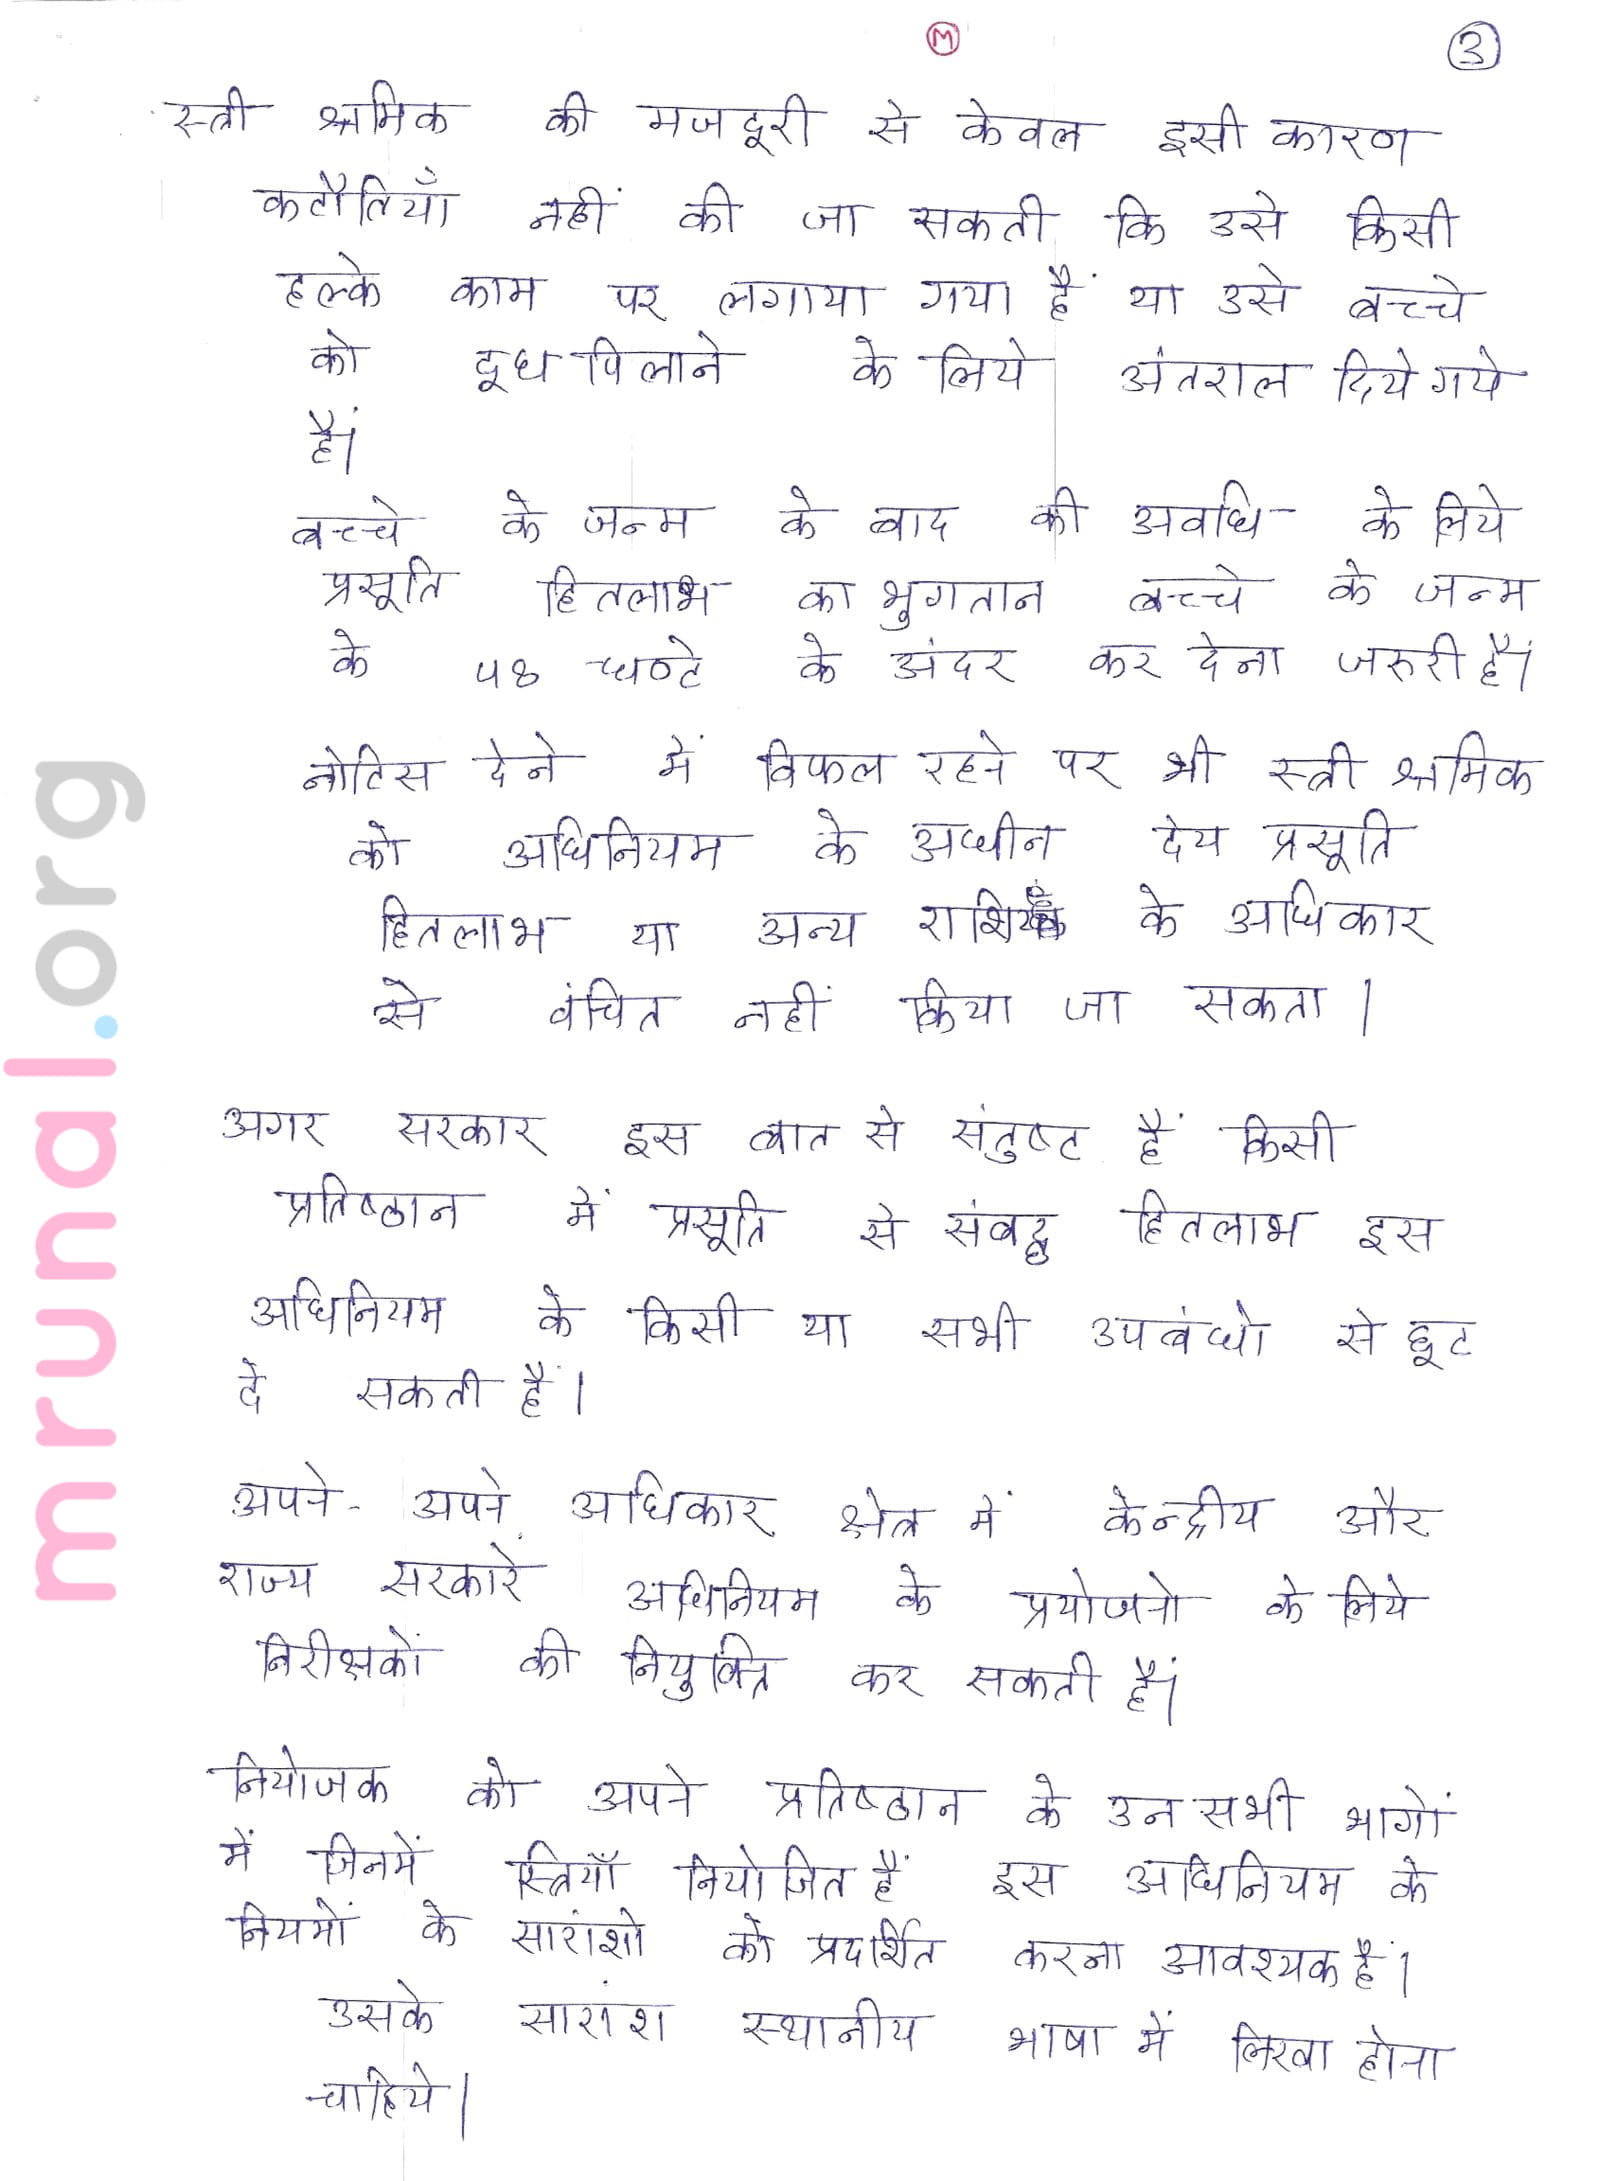 M
3
स्त्री श्रमिक की मजदूरी से केवल इसी कारण
कटौतियाँ नहीं की जा सकती कि उसे किसी
हल्के काम पर लगाया गया हैं या उसे बच्चे
को दूध पिलाने के लिये अंतराल दिये गये
हैं।
बच्चे के जन्म के बाद की अवधि के लिये
प्रसूति हितलाभ का भुगतान बच्चे के जन्म
के ५८ घण्टे के अंदर कर देना जरुरी हैं।
नोटिस देने में विफल रहने पर भी स्त्री श्रमिक
को अधिनियम के अधीन देय प्रसूति
हितलाभ या अन्य के अधिकार
से वंचित नहीं किया जा सकता।
अगर सरकार इस बात से संतुष्ट हैं किसी
प्रतिष्ठान में प्रसूति से संबद्ध हितलाभ इस
अधिनियम के किसी या सभी उपबंधो से छूट
दे सकती हैं।
अपने-अपने अधिकार क्षेत्र में केन्द्रीय और
राज्य सरकारें अधिनियम के प्रयोजनो के लिये
निरीक्षकों की नियुक्ति कर सकती हैं।
नियोजक को अपने प्रतिष्ठान के उन सभी भागों
में जिनमें स्त्रियाँ नियोजित हैं इस अधिनियम के
नियमों के सारांशो को प्रदर्शित करना आवश्यक हैं।
उसके सारांश स्थानीय भाषा में लिखा होना
चाहिये।
mrunal.org